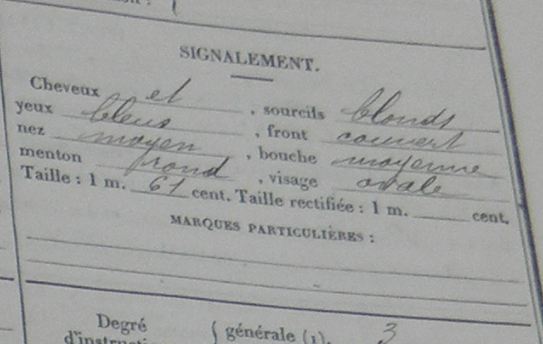 SIGNALEMENT.
Cheveux et , sourcils blonds
yeux bleus , front couvert
nez moyen , bouche moyenne
menton rond , visage ovale
Taille : 1 m. 61 cent. Taille rectifiée : 1 m. cent.
MARQUES PARTICULIÈRES :
Degré { générale (1). 3